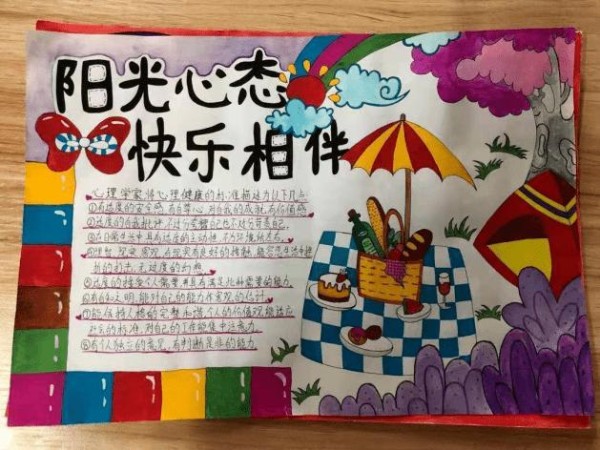 阳光心态
快乐相伴
心理学家将心理健康的标准描述为以下几点
①有适度的安全感,有自尊心,对自我的成就有价值感
②适度的自我批评,不过分夸耀自己也不过分苛责自己。
③在日常生活中具有适度的主动性,不为环境所左右。
④理智,现实,客观,与现实有良好的接触,能容忍生活中挫
折的打击,无过度的幻想
⑤适度的接受个人需要,并具有满足此种需要的能力
⑥有自知之明,能对自己的能力作客观的估计。
⑦能保持人格的完整和谐,个人的价值观能适应
社会的标准,对自己的工作能集中注意力。
⑧有个人独立的意见,有判断是非的能力